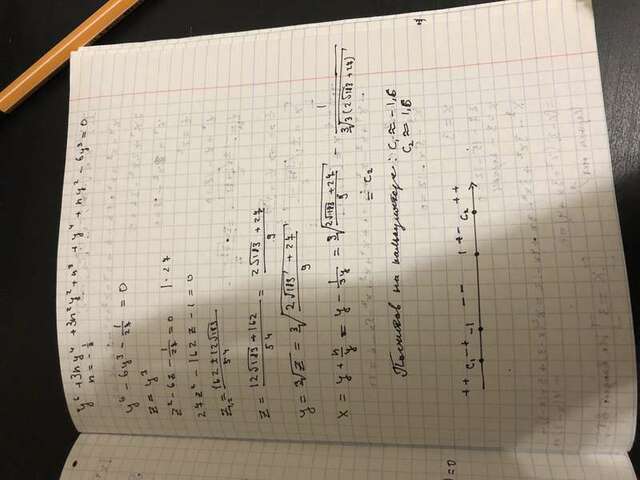 y⁶ + 3ny⁴ + 3n²y² + n³ + y⁴ + ny² − 6y³ = 0
n = −1/3
y⁶ − 6y³ − 1/27 = 0
z = y³
z² − 6z − 1/27 = 0 | · 27
27z² − 162z − 1 = 0
z₁,₂ = (162 ± 12√183)/54
z = (12√183 + 162)/54 = (2√183 + 27)/9
y = ³√z = ³√((2√183 + 27)/9)
x = y + n/y = y − 1/3y = ³√((2√183 + 27)/9) − 1/³√(3(2√183 + 27))
= c₂
на калькуляторе: c₁ ≈ −1,6
c₂ ≈ 1,6
++ c₁ −+ −1 −− 1 +− c₂ ++